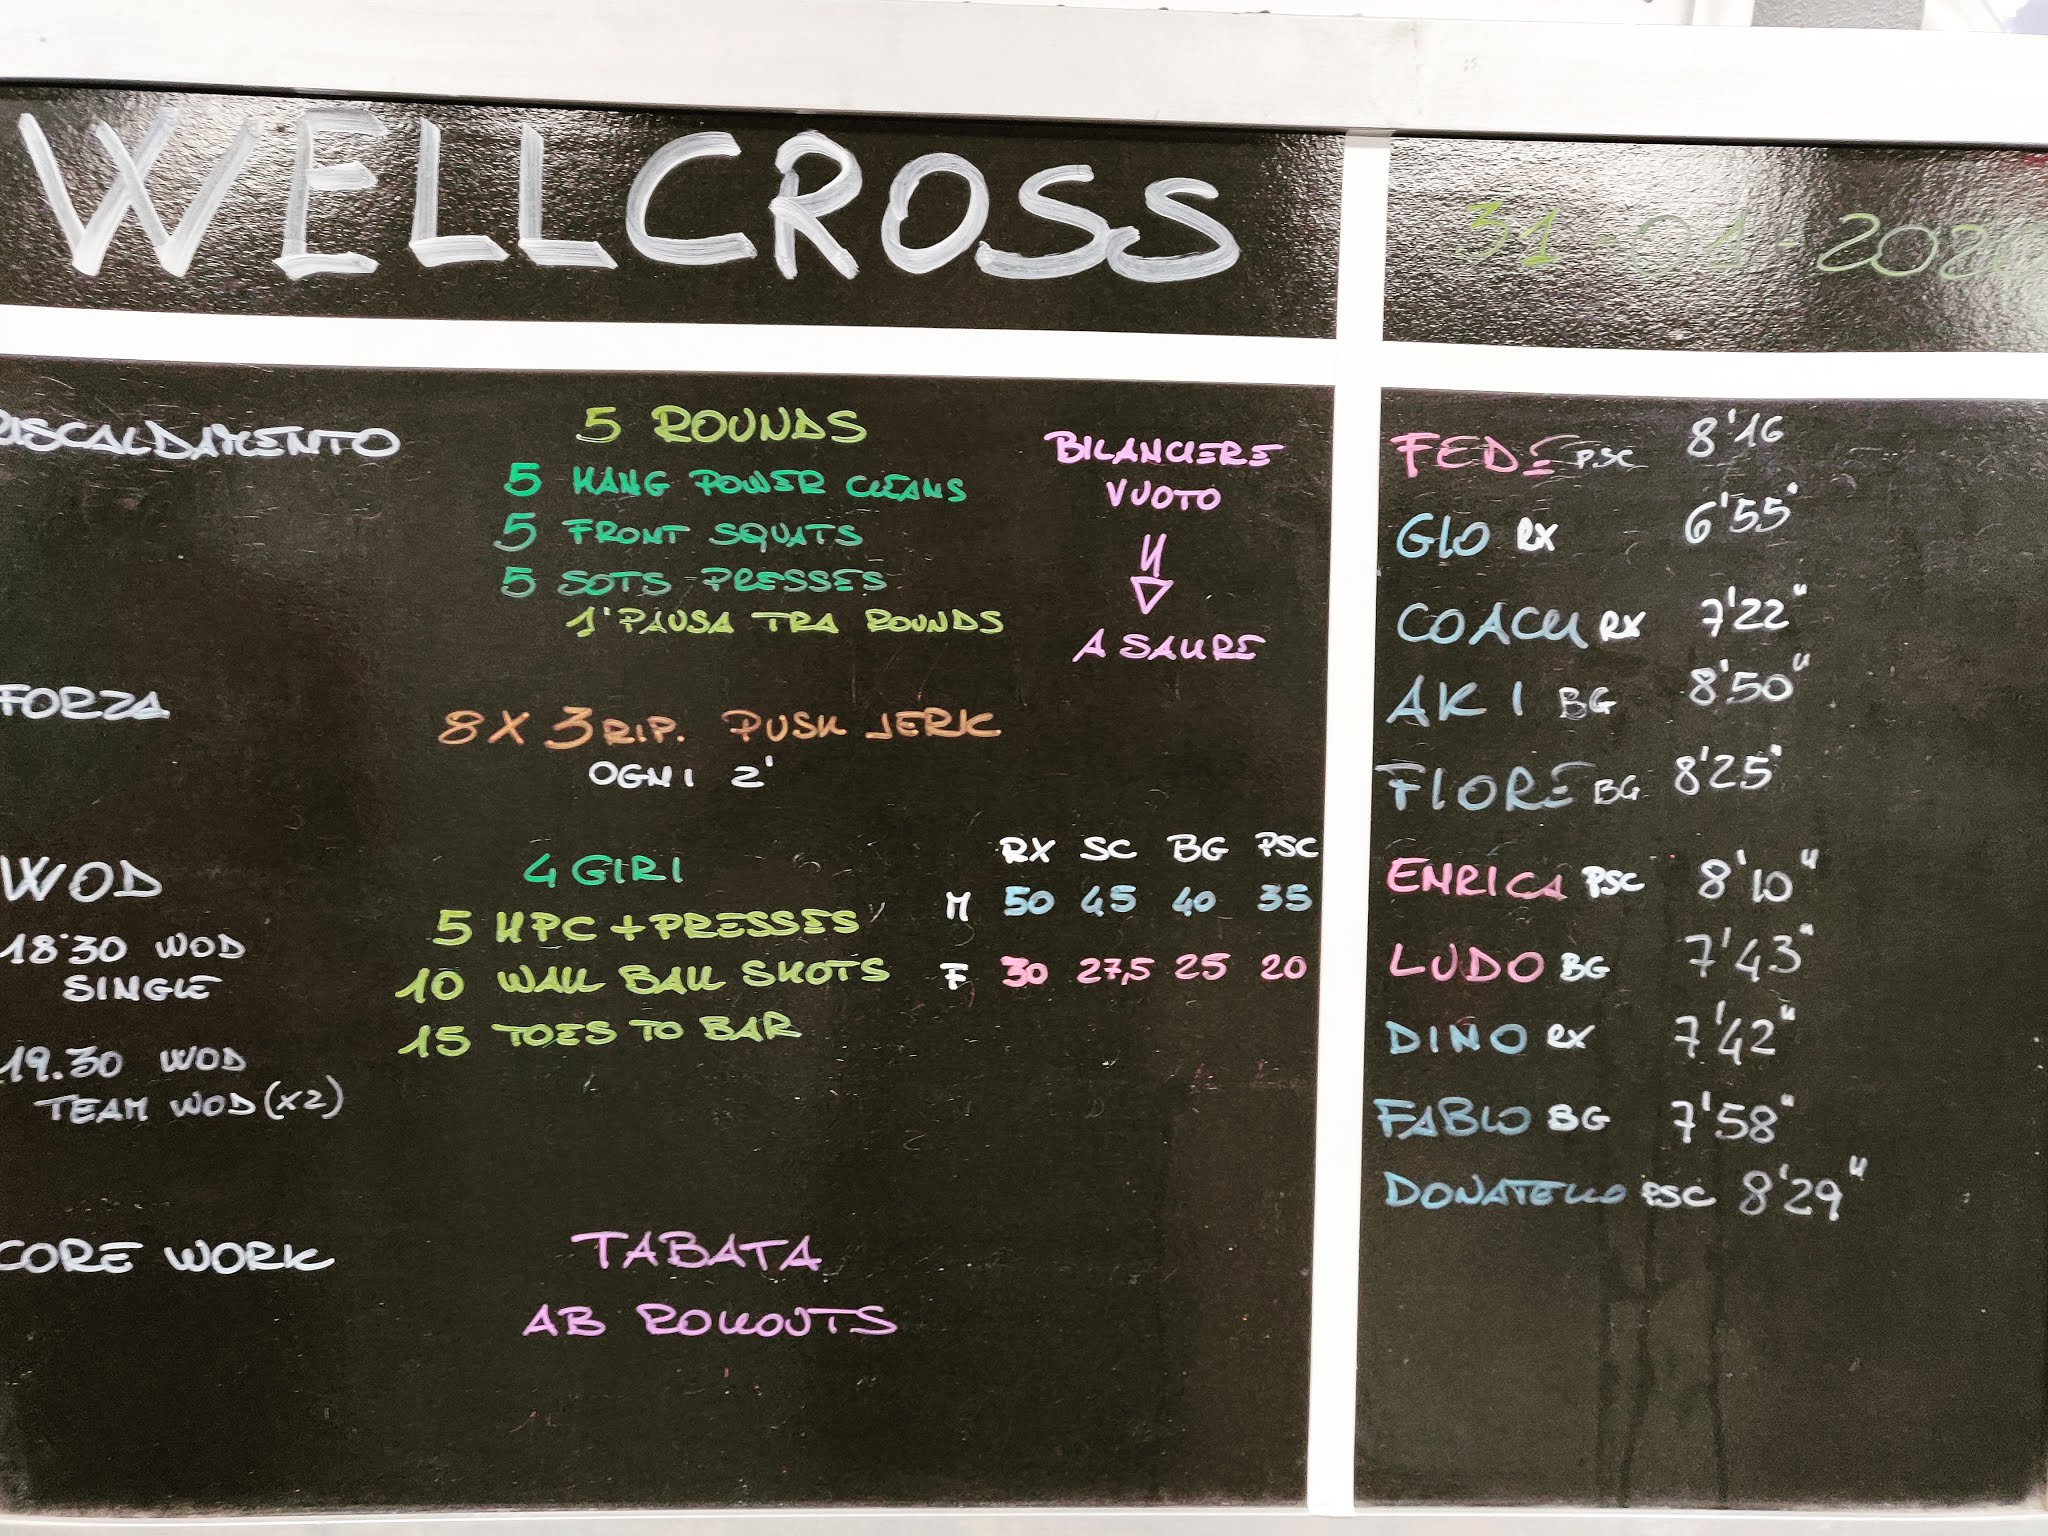 WELLCROSS
31-01-202
RISCALDAMENTO
5 ROUNDS
5 HANG POWER CLEANS
5 FRONT SQUATS
5 SOTS PRESSES
1' PAUSA TRA ROUNDS
BILANCIERE
VUOTO
A SALIRE
FORZA
8 X 3 RIP. PUSH JERK
OGNI 2'
WOD
18:30 WOD
SINGLE
19.30 WOD
TEAM WOD (X2)
4 GIRI
5 HPC + PRESSES
10 WALL BALL SHOTS
15 TOES TO BAR
RX SC BG PSC
M 50 45 40 35
F 30 27,5 25 20
CORE WORK
TABATA
AB ROLLOUTS
FEDE PSC 8'16
GIO RX 6'55"
COACH RX 7'22"
AKI BG 8'50"
FIORE BG 8'25"
ENRICA PSC 8'10"
LUDO BG 7'43"
DINO RX 7'42"
FABIO BG 7'58"
DONATELLO PSC 8'29"